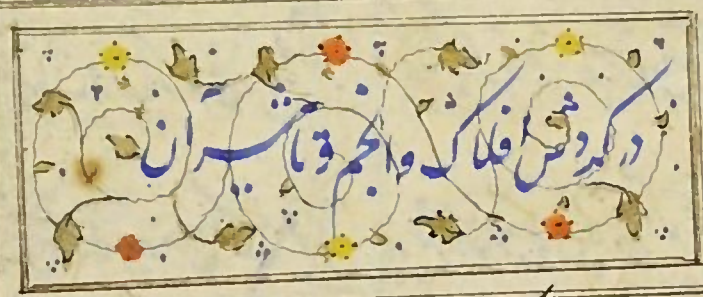 در گردش افلاک و انجم و تاثیر آن